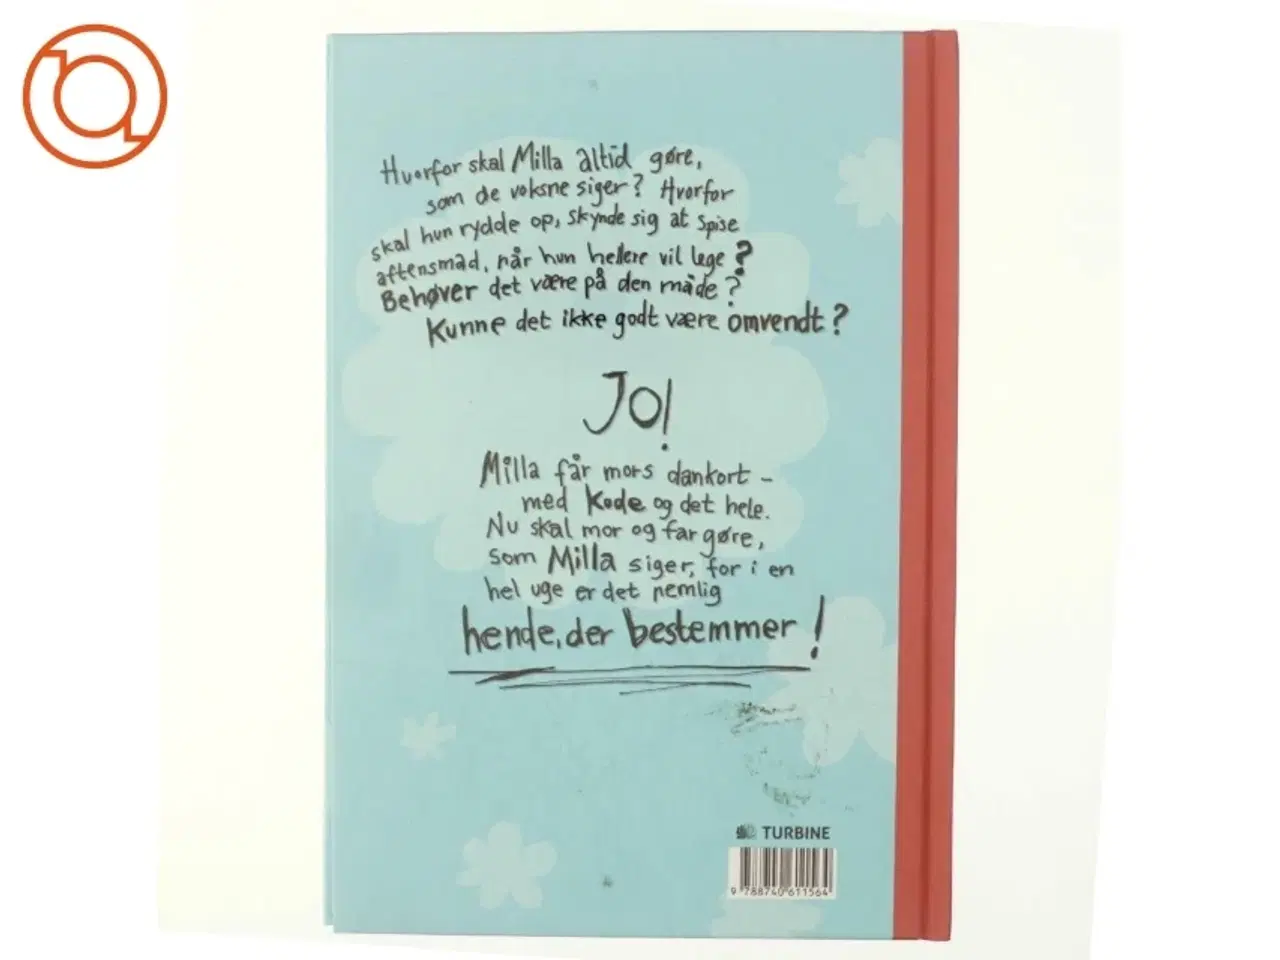 Hvorfor skal Milla altid gøre,
som de voksne siger? Hvorfor
skal hun rydde op, skynde sig at spise
aftensmad, når hun hellere vil lege?
Behøver det være på den måde?
Kunne det ikke godt være omvendt?
JO!
Milla får mors dankort -
med kode og det hele.
Nu skal mor og far gøre,
som Milla siger, for i en
hel uge er det nemlig
hende, der bestemmer!
TURBINE
9 788740 611564